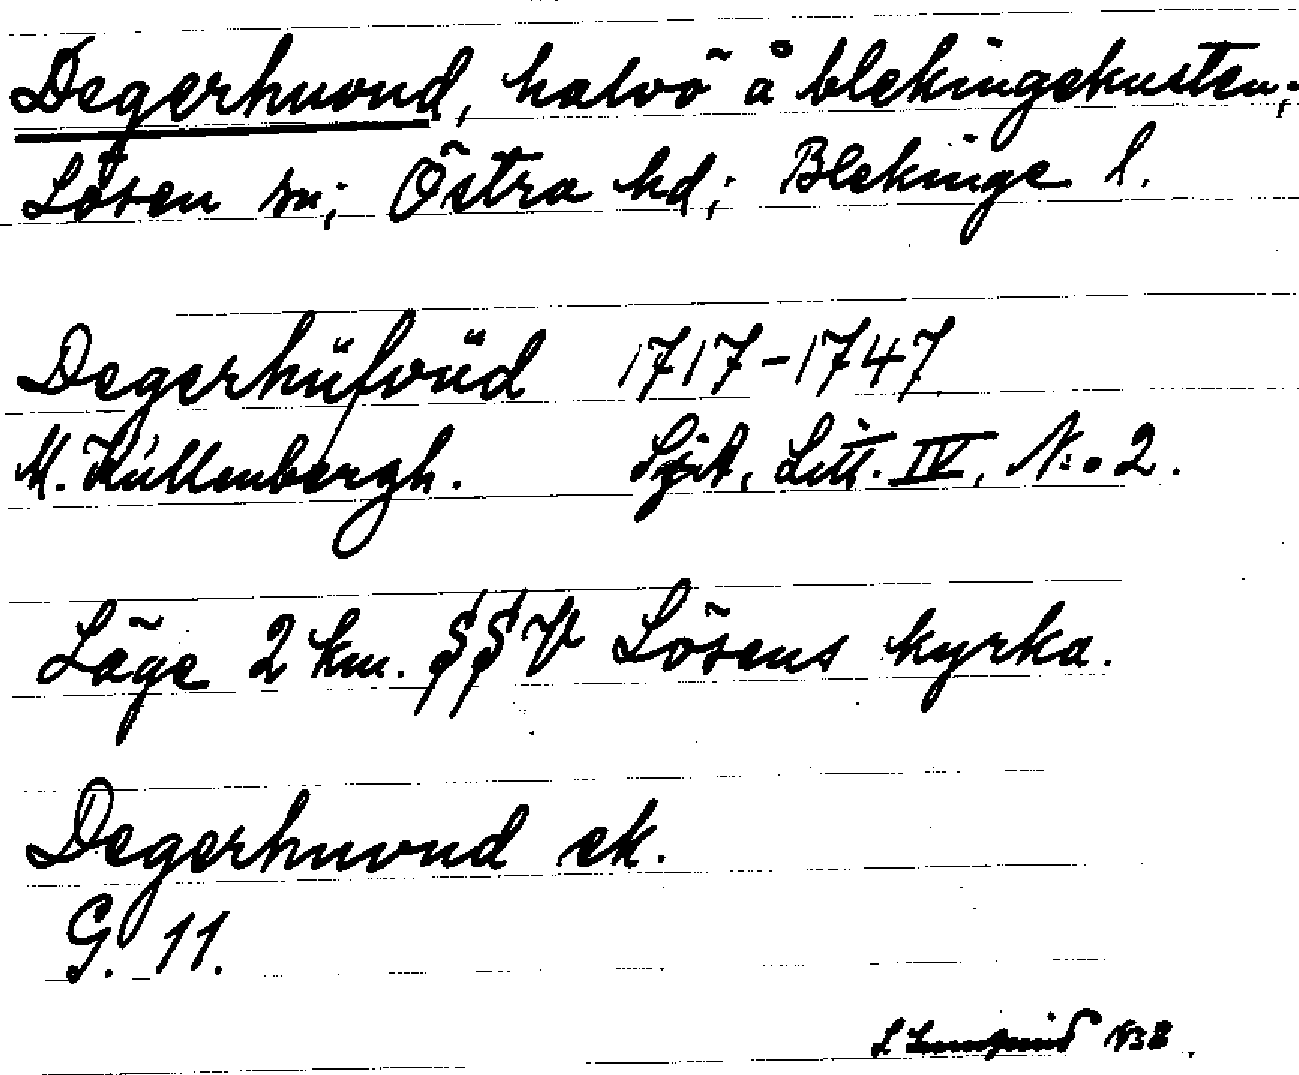 Degerhuvud, halvö å blekingekusten;
Lösen sn; Östra hd; Blekinge l.
Degerhüfvüd 1717-1747
M. Küllenbergh. Sjök. Litt. IV, N:o 2.
Läge 2 km. SSV Lösens kyrka.
Degerhuvud ek.
G. 11.